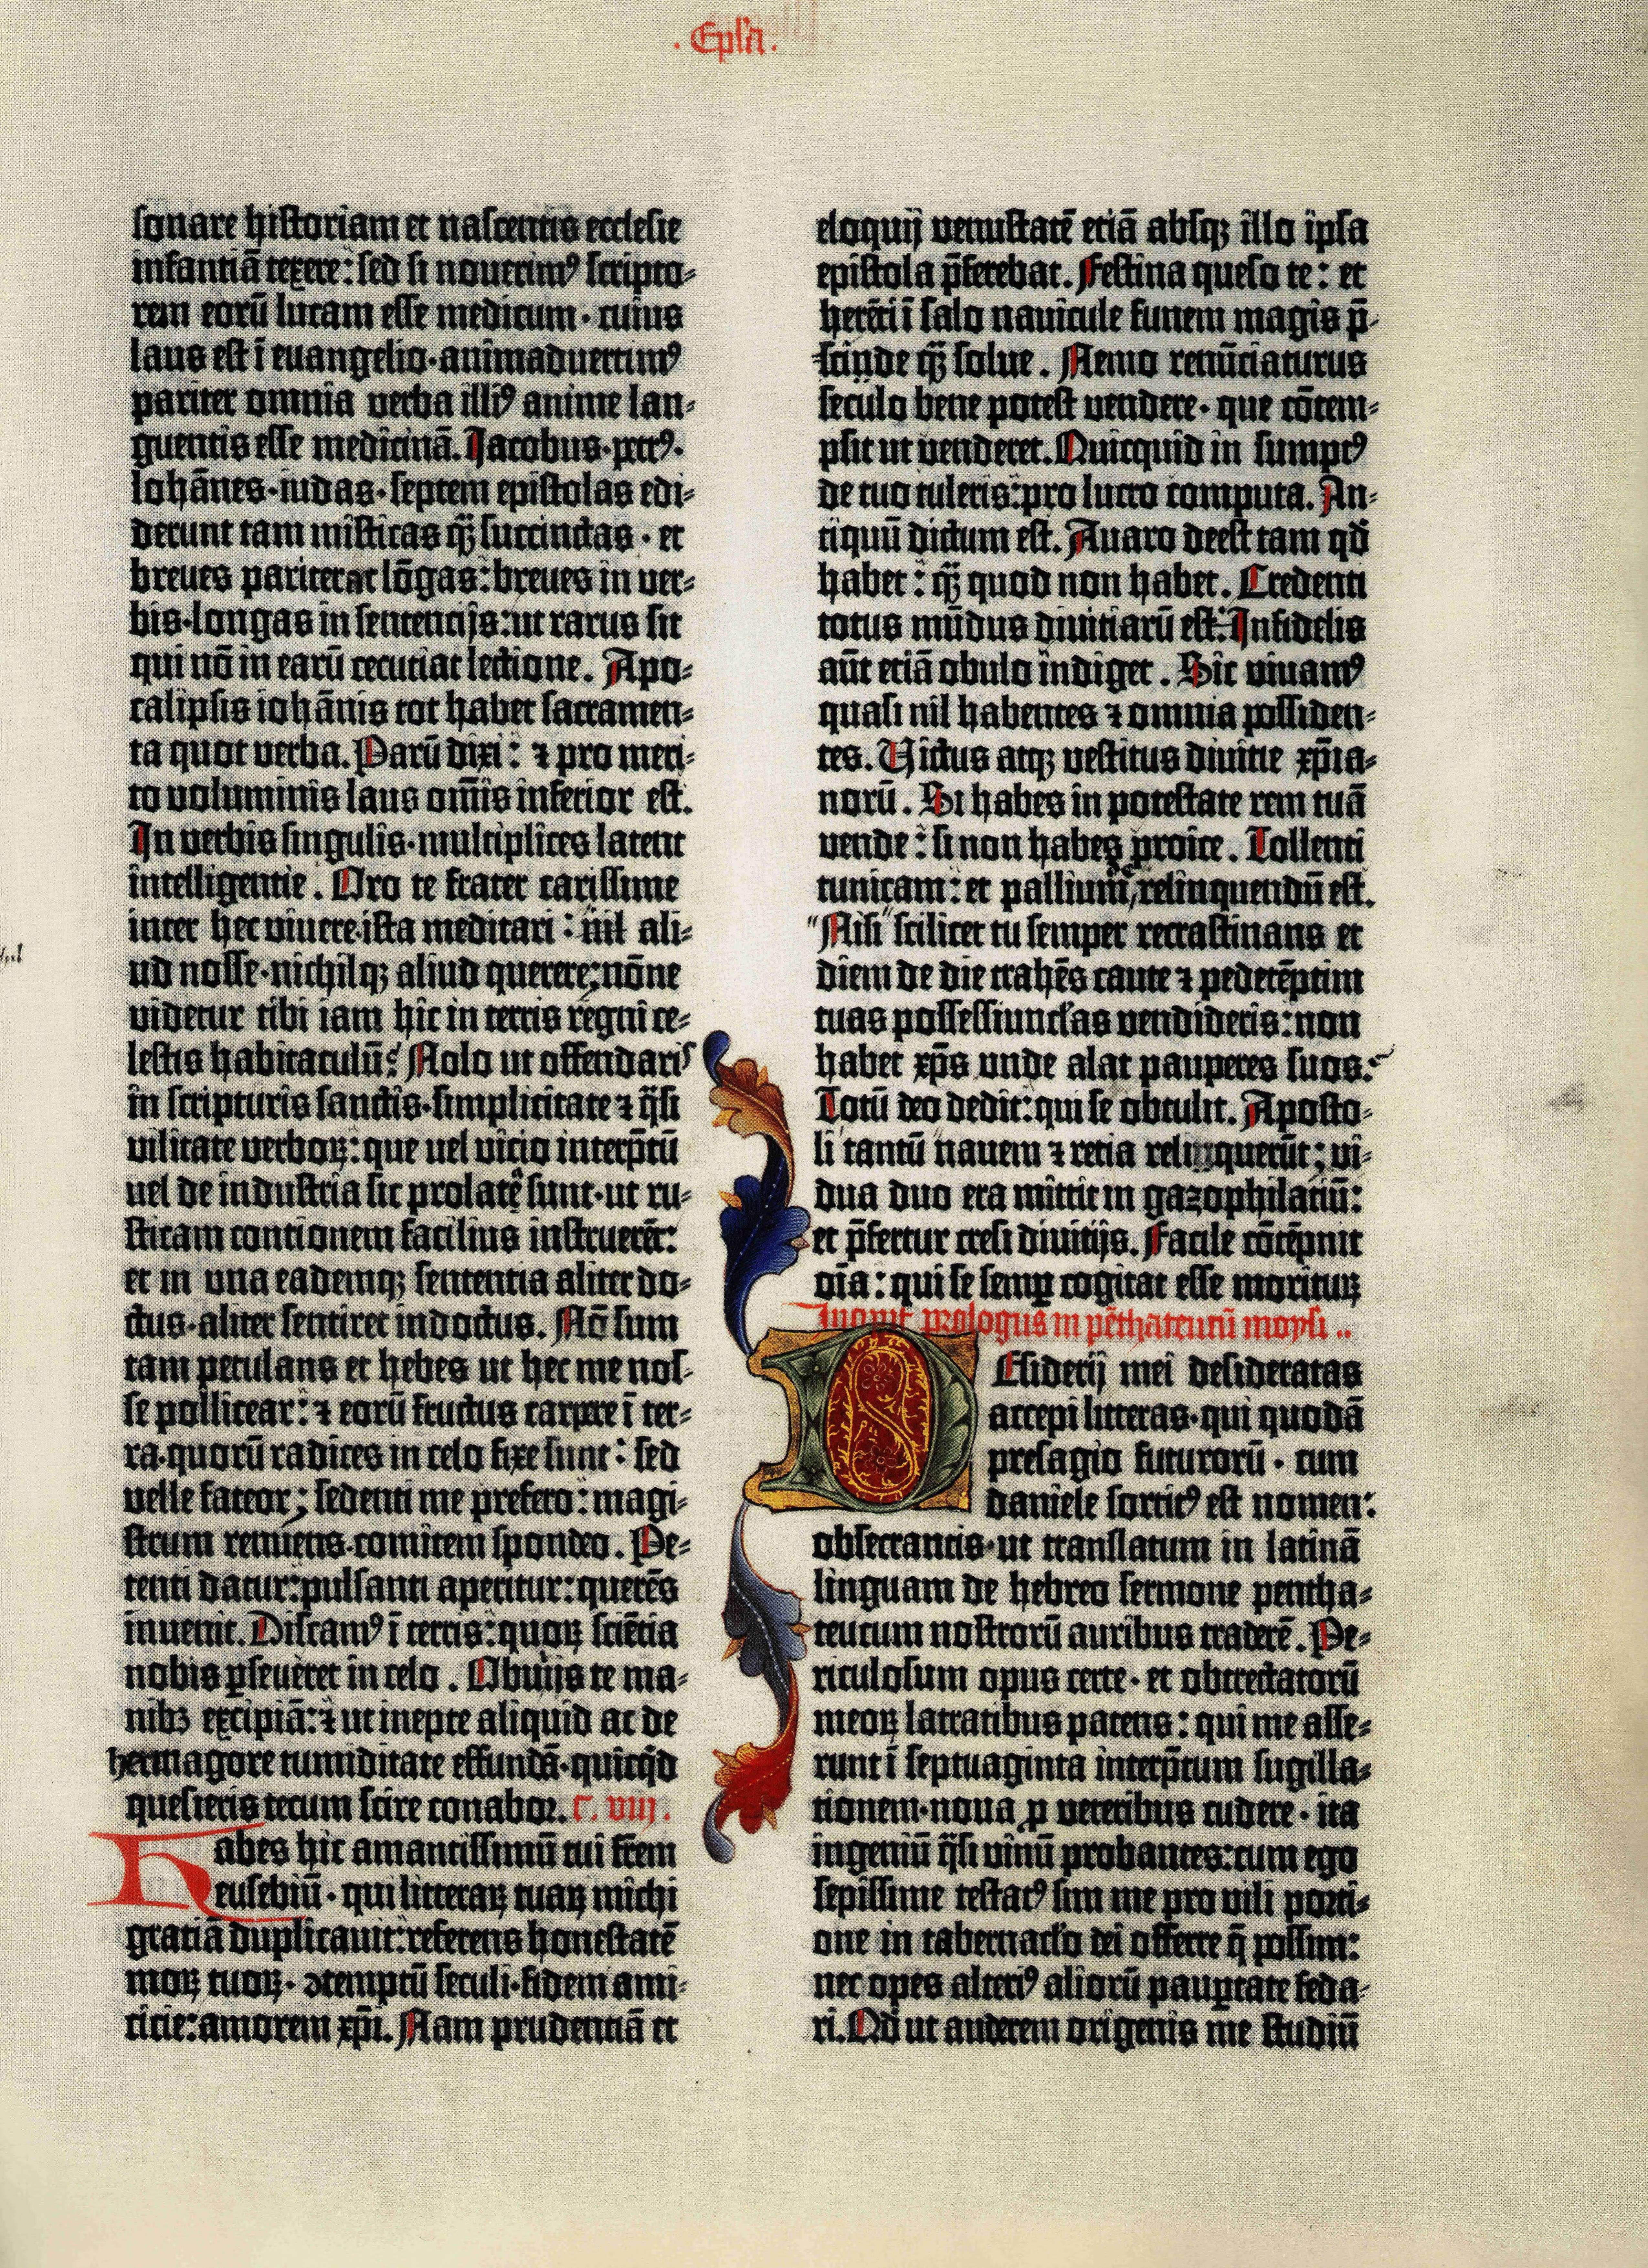 .Epl'a.
sonare historiam et nascentis ecclesie
infantiā texere: sed si noverimꝰ scripto-
rem eorū lucam esse medicum· cuius
laus est ī euangelio·animadvertimꝰ
pariter omnia verba illiꝰ anime lan-
guentis esse medicinā. Jacobus·petrꝰ·
Iohānes·iudas·septem epistolas edi-
derunt tam misticas q̄ȝ succinctas· et
breues pariter ac lōgas: breues in ver-
bis·longas in sentencijs: ut rarus sit
qui nō in earū cecutiat lectione. Apo-
calipsis iohānis tot habet sacramen-
ta quot verba. Parū dixi: ⁊ pro meri-
to voluminis laus om̄is inferior est.
In verbis singulis·multiplices latent
intelligentie. Oro te frater carissime
inter hec vivere·ista meditari: nil ali-
ud nosse·nichilqȝ aliud querere; nōne
videtur tibi iam hic in terris regni ce-
lestis habitaculū? Nolo ut offendaris
in scripturis sanctis·simplicitate ⁊ q̄si
vilitate verboꝝ: que vel vicio interp̄tū
vel de industria sic prolate sunt·ut ru-
sticam contionem facilius instruerēt:
et in una eademqȝ sententia aliter do-
ctus·aliter sentiret indoctus. Nō sum
tam petulans et hebes ut hec me nos-
se pollicear: ⁊ eorū fructus carpere ī ter-
ra·quorū radices in celo fixe sunt: sed
velle fateor; sedenti me prefero: magi-
strum renuens·comitem spondeo. Pe-
tenti datur: pulsanti aperitur: querēs
invenit. Discamꝰ ī terris: quoꝝ sciētia
nobis ꝑseveret in celo. Obvijs te ma-
nibȝ excipiā: ⁊ ut inepte aliquid ac de
hermagore tumiditate effundā·quicq̄d
quesieris tecum scire conabor. C. viij.
Habes hic amantissimū tui fr̄em
eusebiū· qui litteraꝝ tuaꝝ michi
gratiā duplicavit: referens honestatē
moꝝ tuoꝝ· ꝯtemptū seculi·fidem ami-
cicie: amorem xp̄i. Nam prudentiā et
eloquij venustatē etiā absqȝ illo ipsa
epistola p̄ferebat. Festina queso te: et
herēti ī salo navicule funem magis p̄-
scinde q̄ȝ solve. Nemo renūciaturus
seculo bene potest vendere· que cōtem-
psit ut venderet. Quicquid in sumptꝰ
de tuo tuleris: pro lucro computa. An-
tiquū dictum est. Avaro deest tam qđ
habet: q̄ȝ quod non habet. Credenti
totus mūdus divitiarū est: Infidelis
aūt etiā obulo indiget. Sic vivamꝰ
quasi nil habentes ⁊ omnia possiden-
tes. Victus atqȝ vestitus divitie xp̄ia-
norū. Si habes in potestate rem tuā
vende: si non habes proice. Tollenti
tunicam: et pallium relinquendū est.
Nisi scilicet tu semper recrastinans et
diem de die trahēs caute ⁊ pedetēptim
tuas possessiunc'las vendideris: non
habet xp̄s unde alat pauperes suos.
Totū deo dedit: qui se obtulit. Aposto-
li tantū navem ⁊ retia relinquerūt; vi-
dua duo era mittit in gazophilatiū:
et p̄fertur cresi divitijs. Facile cōtēpnit
oīa: qui se semꝑ cogitat esse morituꝝ
Incipit prologus in pēthateucū moysi..
DEsiderij mei desideratas
accepi litteras·qui quodā
presagio futurorū· cum
daniele sortitꝰ est nomen:
obsecrantis·ut translatum in latinā
linguam de hebreo sermone pentha-
teucum nostrorū auribus traderē. Pe-
riculosum opus certe· et obtrectatorū
meoꝝ latratibus patens: qui me asse-
runt ī septuaginta interp̄tum sugilla-
tionem·nova ꝓ veteribus cudere· ita
ingeniū q̄si vinū probantes: cum ego
sepissime testatꝰ sim me pro vili porti-
one in tabernac'lo dei offerre q̄ possim:
nec opes alteriꝰ aliorū pauꝑtate feda-
ri. Qđ ut auderem origenis me studiū